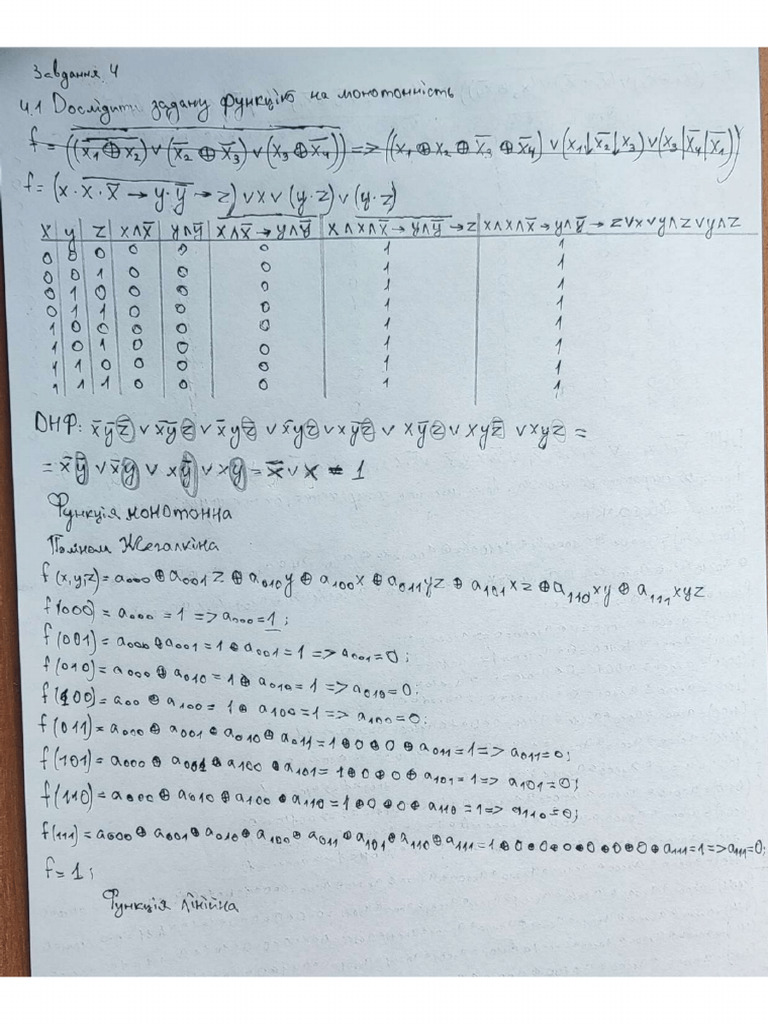 Завдання 4
4.1 Дослідити задану функцію на монотонність
f = ((x̅₁ ⊕ x₂) ∨ (x̅₂ ⊕ x̅₃) ∨ (x₃ ⊕ x̅₄)) => ((x₁ ⊕ x₂ ⊕ x̅₃ ⊕ x̅₄) ∨ (x₁↓x̅₂↓x₃) ∨ (x₃|x̅₄|x̅₁))
f = (x · x · x̅ → y · y̅ → z) ∨ x ∨ (y · z) ∨ (y · z)
x y z x∧x̅ y∧y̅ x∧x̅ → y∧y̅ x∧x∧x̅ → y∧y̅ → z x∧x∧x̅ → y∧y̅ → z∨x∨y∧z∨y∧z
0 0 0 0 0 0 1 1
0 0 1 0 0 0 1 1
0 1 0 0 0 0 1 1
0 1 1 0 0 0 1 1
1 0 0 0 0 0 1 1
1 0 1 0 0 0 1 1
1 1 0 0 0 0 1 1
1 1 1 0 0 0 1 1
ДНФ: x̅y̅z̅ ∨ x̅y̅z ∨ x̅yz̅ ∨ x̅yz ∨ xy̅z̅ ∨ xy̅z ∨ xyz̅ ∨ xyz =
= x̅y̅ ∨ x̅y ∨ xy̅ ∨ xy = x̅ ∨ x = 1
Функція монотонна
Поліном Жегалкіна
f(x,y,z) = a₀₀₀ ⊕ a₀₀₁z ⊕ a₀₁₀y ⊕ a₁₀₀x ⊕ a₀₁₁yz ⊕ a₁₀₁xz ⊕ a₁₁₀xy ⊕ a₁₁₁xyz
f(000) = a₀₀₀ = 1 => a₀₀₀ = 1;
f(001) = a₀₀₀ ⊕ a₀₀₁ = 1 ⊕ a₀₀₁ = 1 => a₀₀₁ = 0;
f(010) = a₀₀₀ ⊕ a₀₁₀ = 1 ⊕ a₀₁₀ = 1 => a₀₁₀ = 0;
f(100) = a₀₀ ⊕ a₁₀₀ = 1 ⊕ a₁₀₀ = 1 => a₁₀₀ = 0;
f(011) = a₀₀₀ ⊕ a₀₀₁ ⊕ a₀₁₀ ⊕ a₀₁₁ = 1 ⊕ 0 ⊕ 0 ⊕ a₀₁₁ = 1 => a₀₁₁ = 0;
f(101) = a₀₀₀ ⊕ a₀₀₁ ⊕ a₁₀₀ ⊕ a₁₀₁ = 1 ⊕ 0 ⊕ 0 ⊕ a₁₀₁ = 1 => a₁₀₁ = 0;
f(110) = a₀₀₀ ⊕ a₀₁₀ ⊕ a₁₀₀ ⊕ a₁₁₀ = 1 ⊕ 0 ⊕ 0 ⊕ a₁₁₀ = 1 => a₁₁₀ = 0;
f(111) = a₀₀₀ ⊕ a₀₀₁ ⊕ a₀₁₀ ⊕ a₁₀₀ ⊕ a₀₁₁ ⊕ a₁₀₁ ⊕ a₁₁₀ ⊕ a₁₁₁ = 1 ⊕ 0 ⊕ 0 ⊕ 0 ⊕ 0 ⊕ 0 ⊕ 0 ⊕ a₁₁₁ = 1 => a₁₁₁ = 0;
f = 1;
Функція лінійна